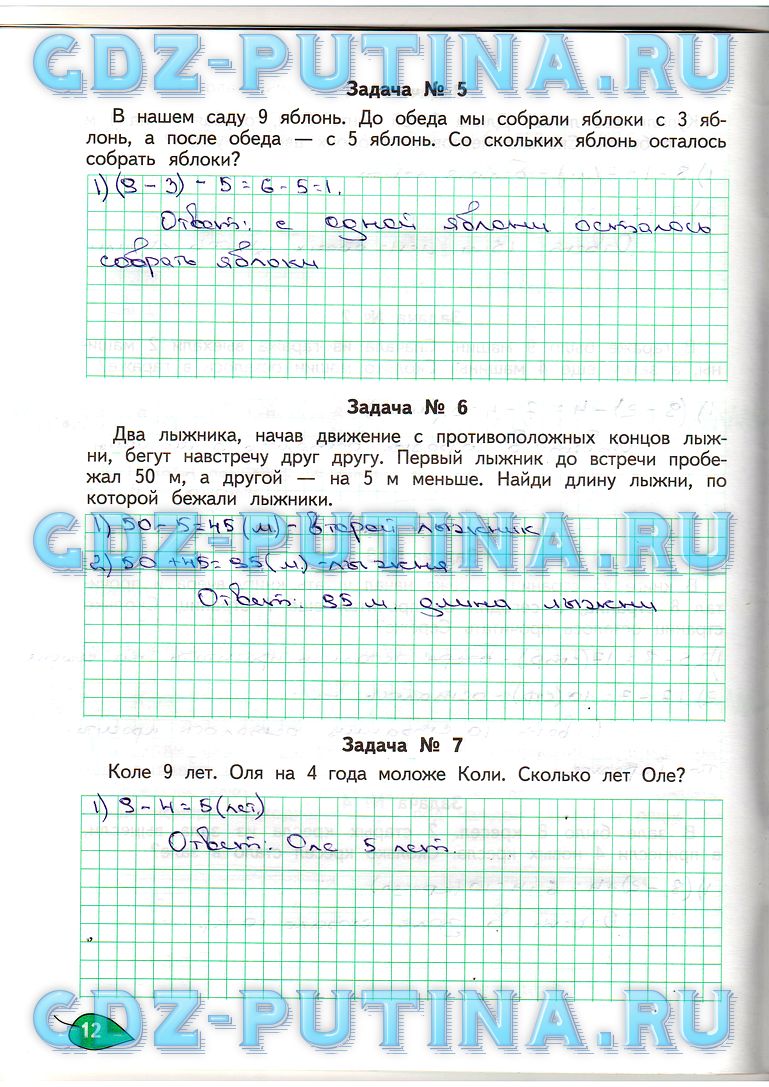 GDZ-PUTINA.RU
Задача № 5
В нашем саду 9 яблонь. До обеда мы собрали яблоки с 3 яб-
лонь, а после обеда — с 5 яблонь. Со скольких яблонь осталось
собрать яблоки?
1) (9 - 3) - 5 = 6 - 5 = 1.
Ответ: с одной яблони осталось
собрать яблоки
Задача № 6
Два лыжника, начав движение с противоположных концов лыж-
ни, бегут навстречу друг другу. Первый лыжник до встречи пробе-
жал 50 м, а другой — на 5 м меньше. Найди длину лыжни, по
которой бежали лыжники.
GDZ-PUTINA.RU
1) 50 - 5 = 45 (м) - второй лыжник
2) 50 + 45 = 95 (м) - лыжня
Ответ: 95 м. длина лыжни
Задача № 7
Коле 9 лет. Оля на 4 года моложе Коли. Сколько лет Оле?
1) 9 - 4 = 5 (лет)
Ответ. Оле 5 лет.
GDZ-PUTINA.RU
12